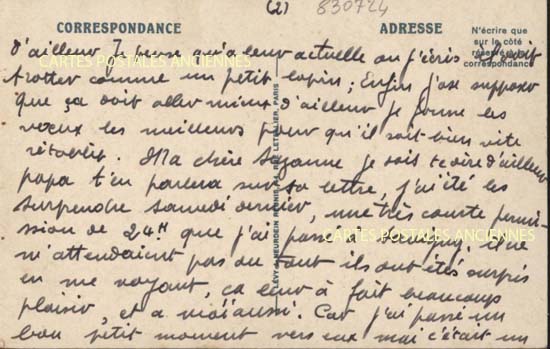 (2) 830724
CORRESPONDANCE
ADRESSE
N'écrire que
sur le côté
réservé à la
correspondance
d'ailleur Je pense qu'a leur actuelle ou j'écris doit
trotter comme un petit lapin; Enfin j'ose supposer
que ça doit aller mieux d'ailleur je forme les
voeux les meilleurs pour qu'il soit bien vite
rétabli. Ma chère Suzanne je dois te dire d'ailleur
papa t'en parlera sur sa lettre, j'ai été les
surprendre samedi dernier, une très courte permi-
ssion de 24H que j'ai passé
n'attendaient pas du tout ils ont étés surpis
en me voyant, ça leur à fait beaucoup
plaisir, et a moi aussi. Car j'ai passé un
bon petit moment vers eux mai c'était un
LÉVY & NEURDEIN RÉUNIS, 44, RUE LETELLIER, PARIS
CARTES POSTALES ANCIENNES
CARTES POSTALES ANCIENNES